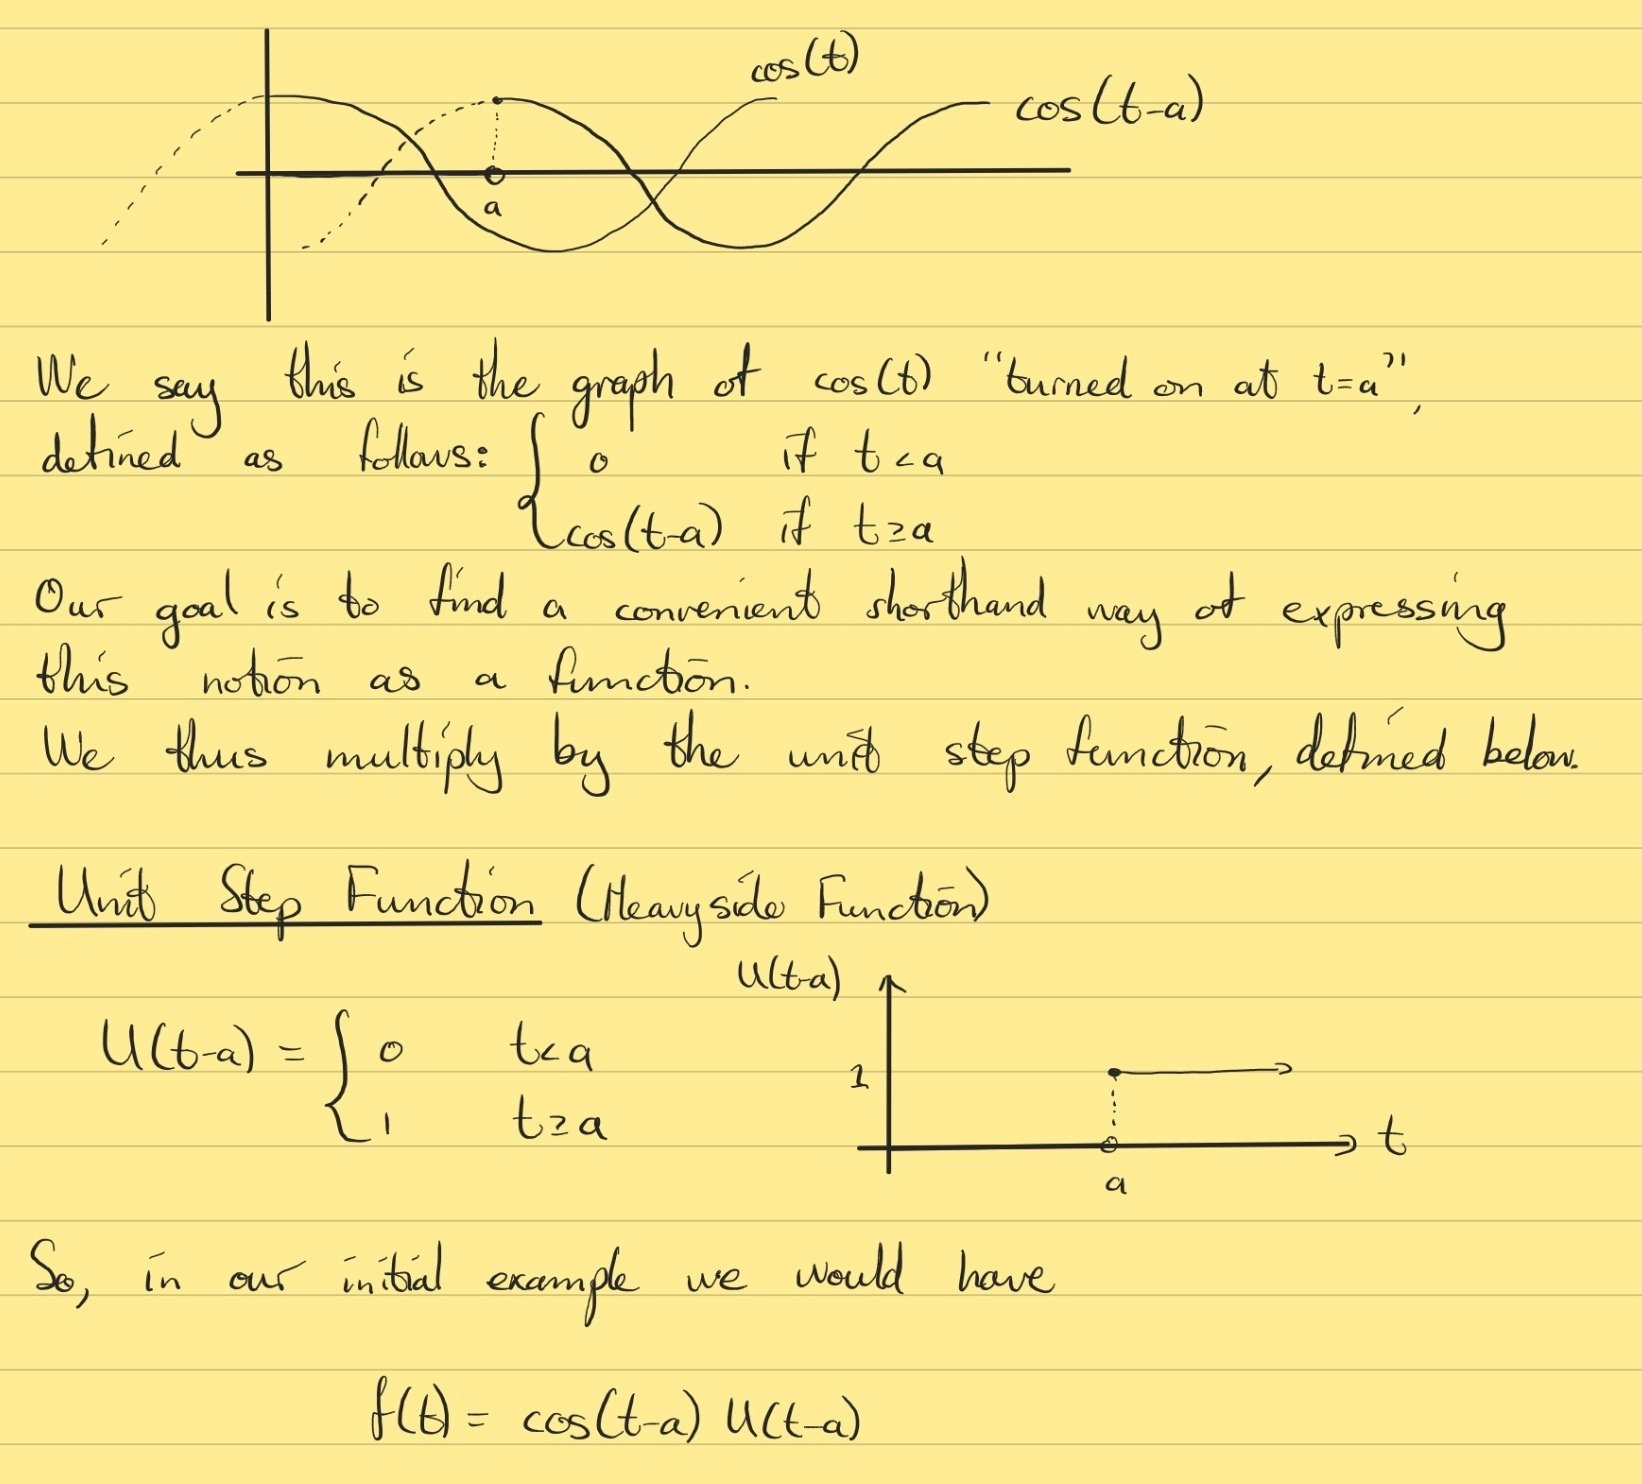 cos(t)
cos(t-a)
a
We say this is the graph of cos(t) "turned on at t=a",
defined as follows: { 0 if t<a
cos(t-a) if t≥a
Our goal is to find a convenient shorthand way of expressing
this notion as a function.
We thus multiply by the unit step function, defined below.
Unit Step Function (Heavyside Function)
U(t-a)
U(t-a) = { 0 t<a
1
1 t≥a
t
a
So, in our initial example we would have
f(t) = cos(t-a) U(t-a)